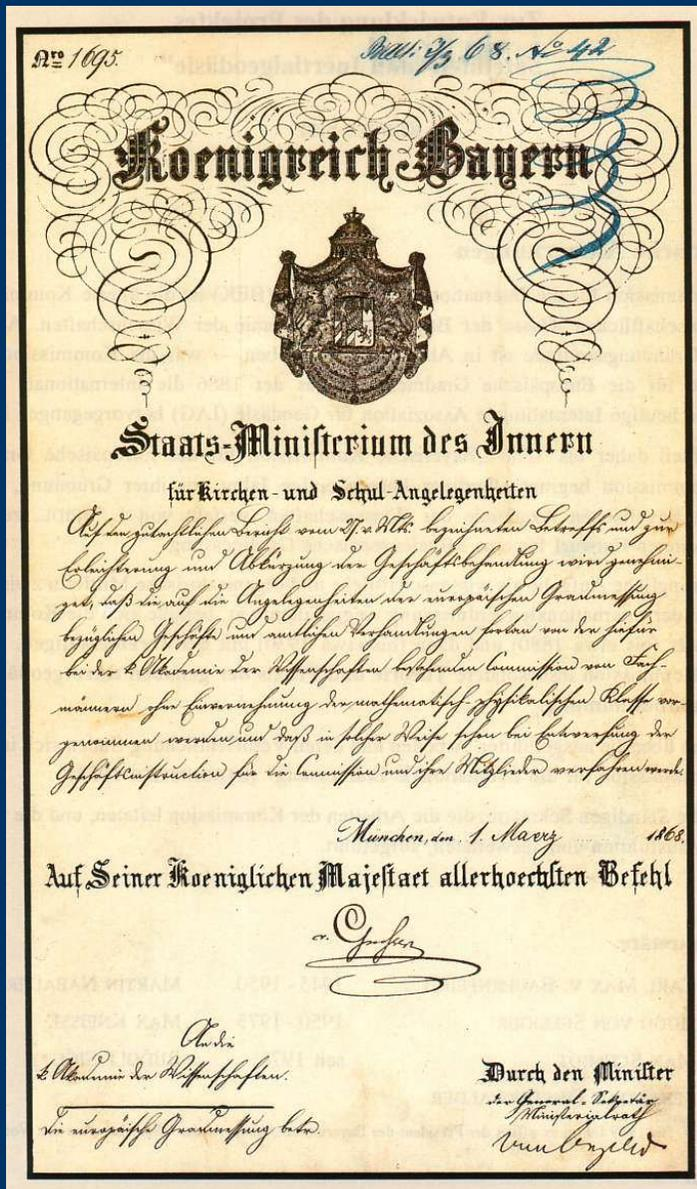 Nro 1695.
3/3 68. No 42
Koenigreich Bayern
Staats-Ministerium des Innern
für Kirchen- und Schul-Angelegenheiten
Auf den gutachtlichen Bericht vom 27. v. Mts. bezeichneten Betreffs und zur
Erleichterung und Abkürzung der Geschäftsbehandlung wird genehmi-
get, daß die auf die Angelegenheiten der europäischen Gradmessung
bezüglichen Geschäfte und amtlichen Verhandlungen fortan von der hiefür
bei der k. Akademie der Wissenschaften bestehenden Commission von Fach-
männern ohne Einvernehmung der mathematisch-physikalischen Klasse vor-
genommen werden und daß in solcher Weise schon bei Entwerfung der
Geschäftsinstruction für die Commission und ihre Mitglieder verfahren werde.
München, den 1. Maerz 1868.
Auf Seiner Koeniglichen Majestaet allerhoechsten Befehl
v. Gresser
An die
k. Akademie der Wissenschaften.
Die europäische Gradmessung betr.
Durch den Minister
der General-Sekretär
Ministerialrath